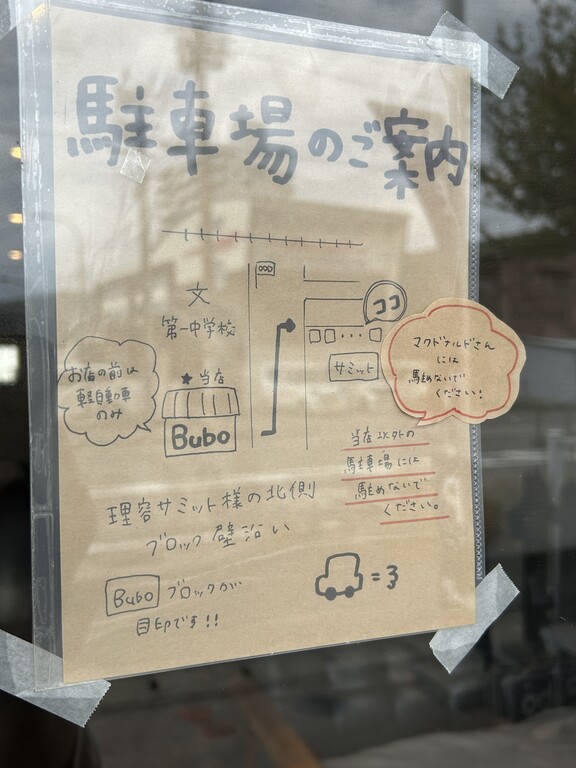 駐車場のご案内
文
第一中学校
ココ
サミット
マクドナルドさん
には
駐めないで
ください!
お店の前は
軽自動車
のみ
★当店
Bubo
当店以外の
駐車場には
駐めないで
ください。
理容サミット様の北側
ブロック壁沿い
Bubo ブロックが
目印です!!
=3